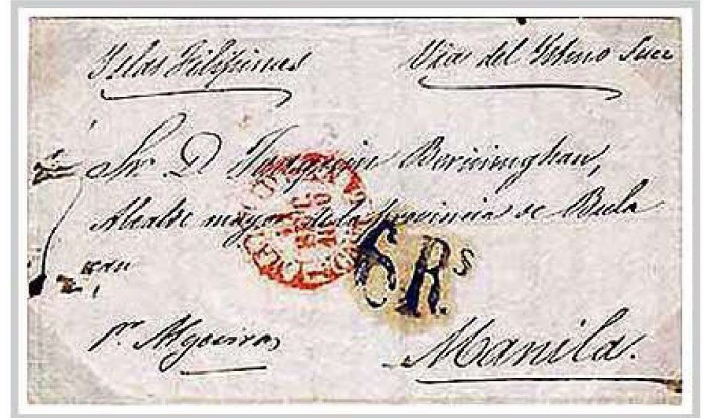 Yslas Filipinas
Via del Ystmo Suez
Sor D. Joaquin
Alcalde mayor de la provincia de Bula
can
6 Rs
pr Algeciras
Manila.